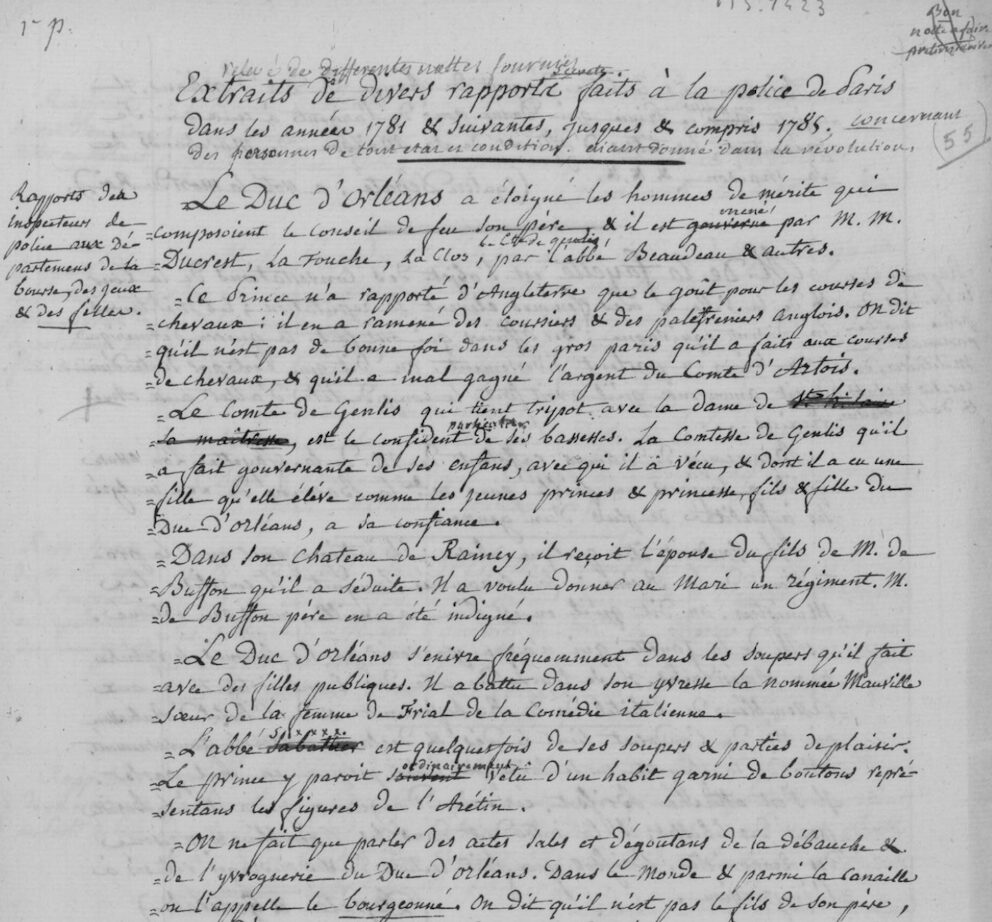 1re p.
Bon
notte a faire
relevé de differentes nottes fournies
secrets
Extraits de divers rapports faits à la police de Paris
dans les années 1781 & suivantes, jusques & compris 1785. concernant
des personnes de tout etat et condition. aiant donné dans la révolution.
55
Rapports des
inspecteurs de
police aux Dé-
partemens de la
bourse, des jeux
& des filles.
=Le Duc d'Orléans a éloigné les hommes de mérite qui
=composoient le conseil de feu son père & il est gouverné mené par M. M.
=Ducrest, La Touche, La Clos, le Cte de genlis, par l'abbé Beaudeau & autres.
=Ce Prince n'a rapporté d'Angleterre que le goût pour les courses de
=chevaux : il en a ramené des coursiers & des palefreniers anglois. On dit
=qu'il n'est pas de bonne foi dans les gros paris qu'il a faits aux courses
=de chevaux, & qu'il a mal gagné l'argent du Comte d'Artois.
=Le Comte de Genlis qui tient tripot avec la dame de St hilaire
=sa maitresse, est le confident particulier de ses bassesses. La Comtesse de Genlis qu'il
=a fait gouvernante de ses enfans, avec qui il à vécu, & dont il a eu une
=fille qu'elle élève comme les jeunes princes & princesse, fils & fille du
=Duc d'Orléans, a sa confiance.
=Dans son chateau de Raincy, il reçoit l'épouse du fils de M. de
=Buffon qu'il a séduite. Il a voulu donner au mari un régiment. M.
=de Buffon père en a été indigné.
=Le Duc d'Orléans s'enivre fréquemment dans les soupers qu'il fait
=avec des filles publiques. Il a battu dans son yvresse la nommée Mauville
=sœur de la femme de Frial de la Comédie italienne.
=L'abbé Sabathier S.xxxxx. est quelquesfois de ses soupers & parties de plaisir.
=Le prince y paroit souvent ordinairement vêtu d'un habit garni de boutons repré-
=sentans les figures de l'Arétin.
=On ne fait que parler des actes sales et dégoutans de la débauche &
=de l'yvrognerie du Duc d'Orléans. Dans le Monde & parmi la canaille
=on l'appelle le bourgeonné. On dit qu'il n'est pas le fils de son père,